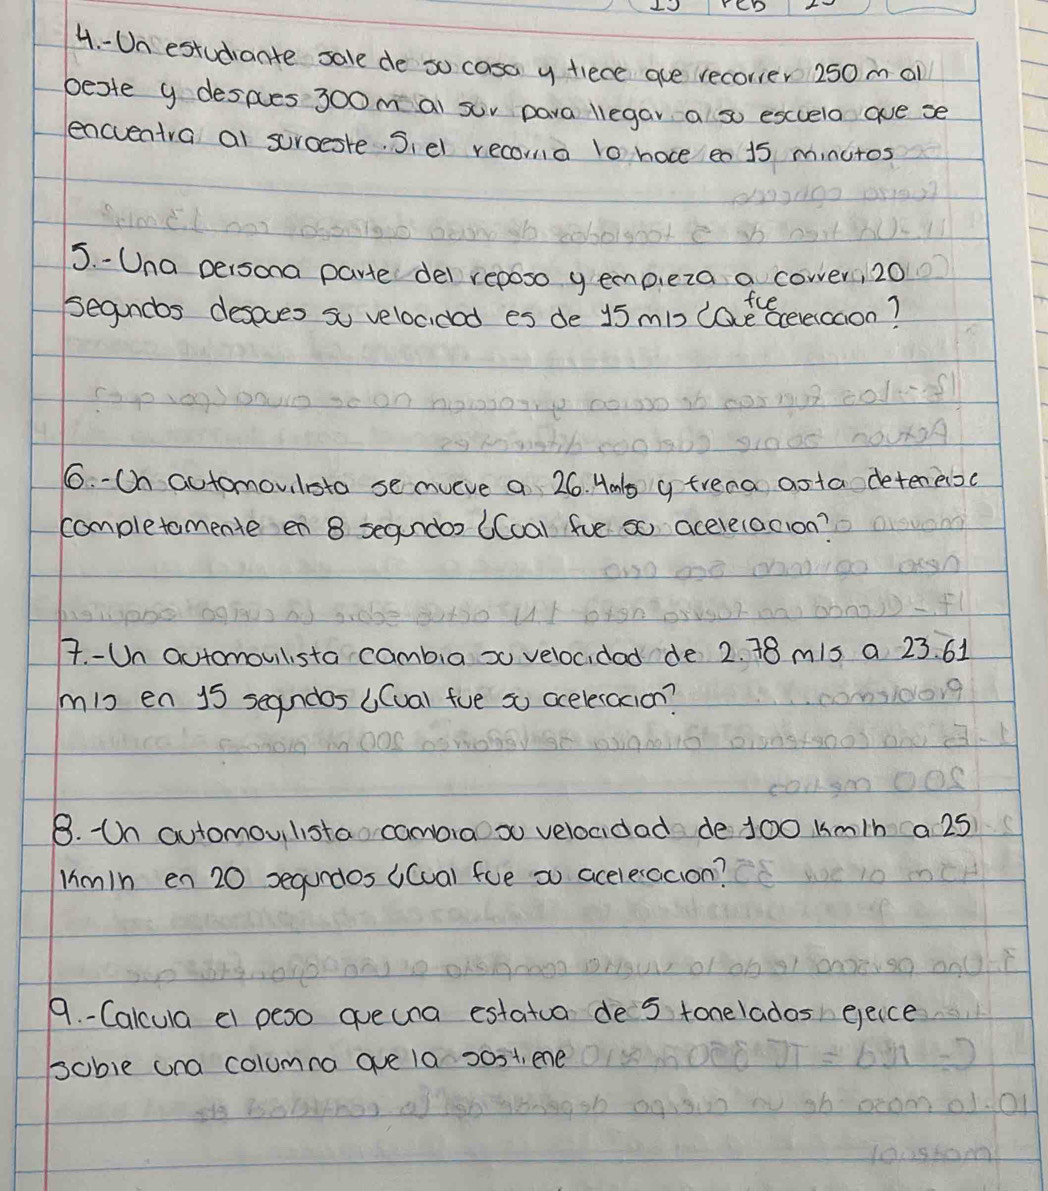 15 Feb 23
4.-Un estudiante sale de su casa y tiene que recorrer 250 m al
oeste y despues 300 m al sur para llegar a su escuela que se
encuentra al suroeste. Si el recorrio lo hace en 15 minutos
5.-Una persona parte del reposo y empieza a correr, 20
segundos despues su velocidad es de 15 m/s ¿Que fue aceleracion?
6.-Un automovilista se mueve a 26.4m/s y frena asta detenerse
completamente en 8 segundos ¿Cual fue su aceleracion?
7.-Un automovilista cambia su velocidad de 2.78 m/s a 23.61
m/s en 15 segundos ¿Cual fue su aceleracion?
8.-Un automovilista cambia su velocidad de 100 km/h a 25
km/h en 20 segundos ¿Cual fue su aceleracion?
9.-Calcula el peso que una estatua de 5 toneladas ejerce
sobre una columna que la sostiene